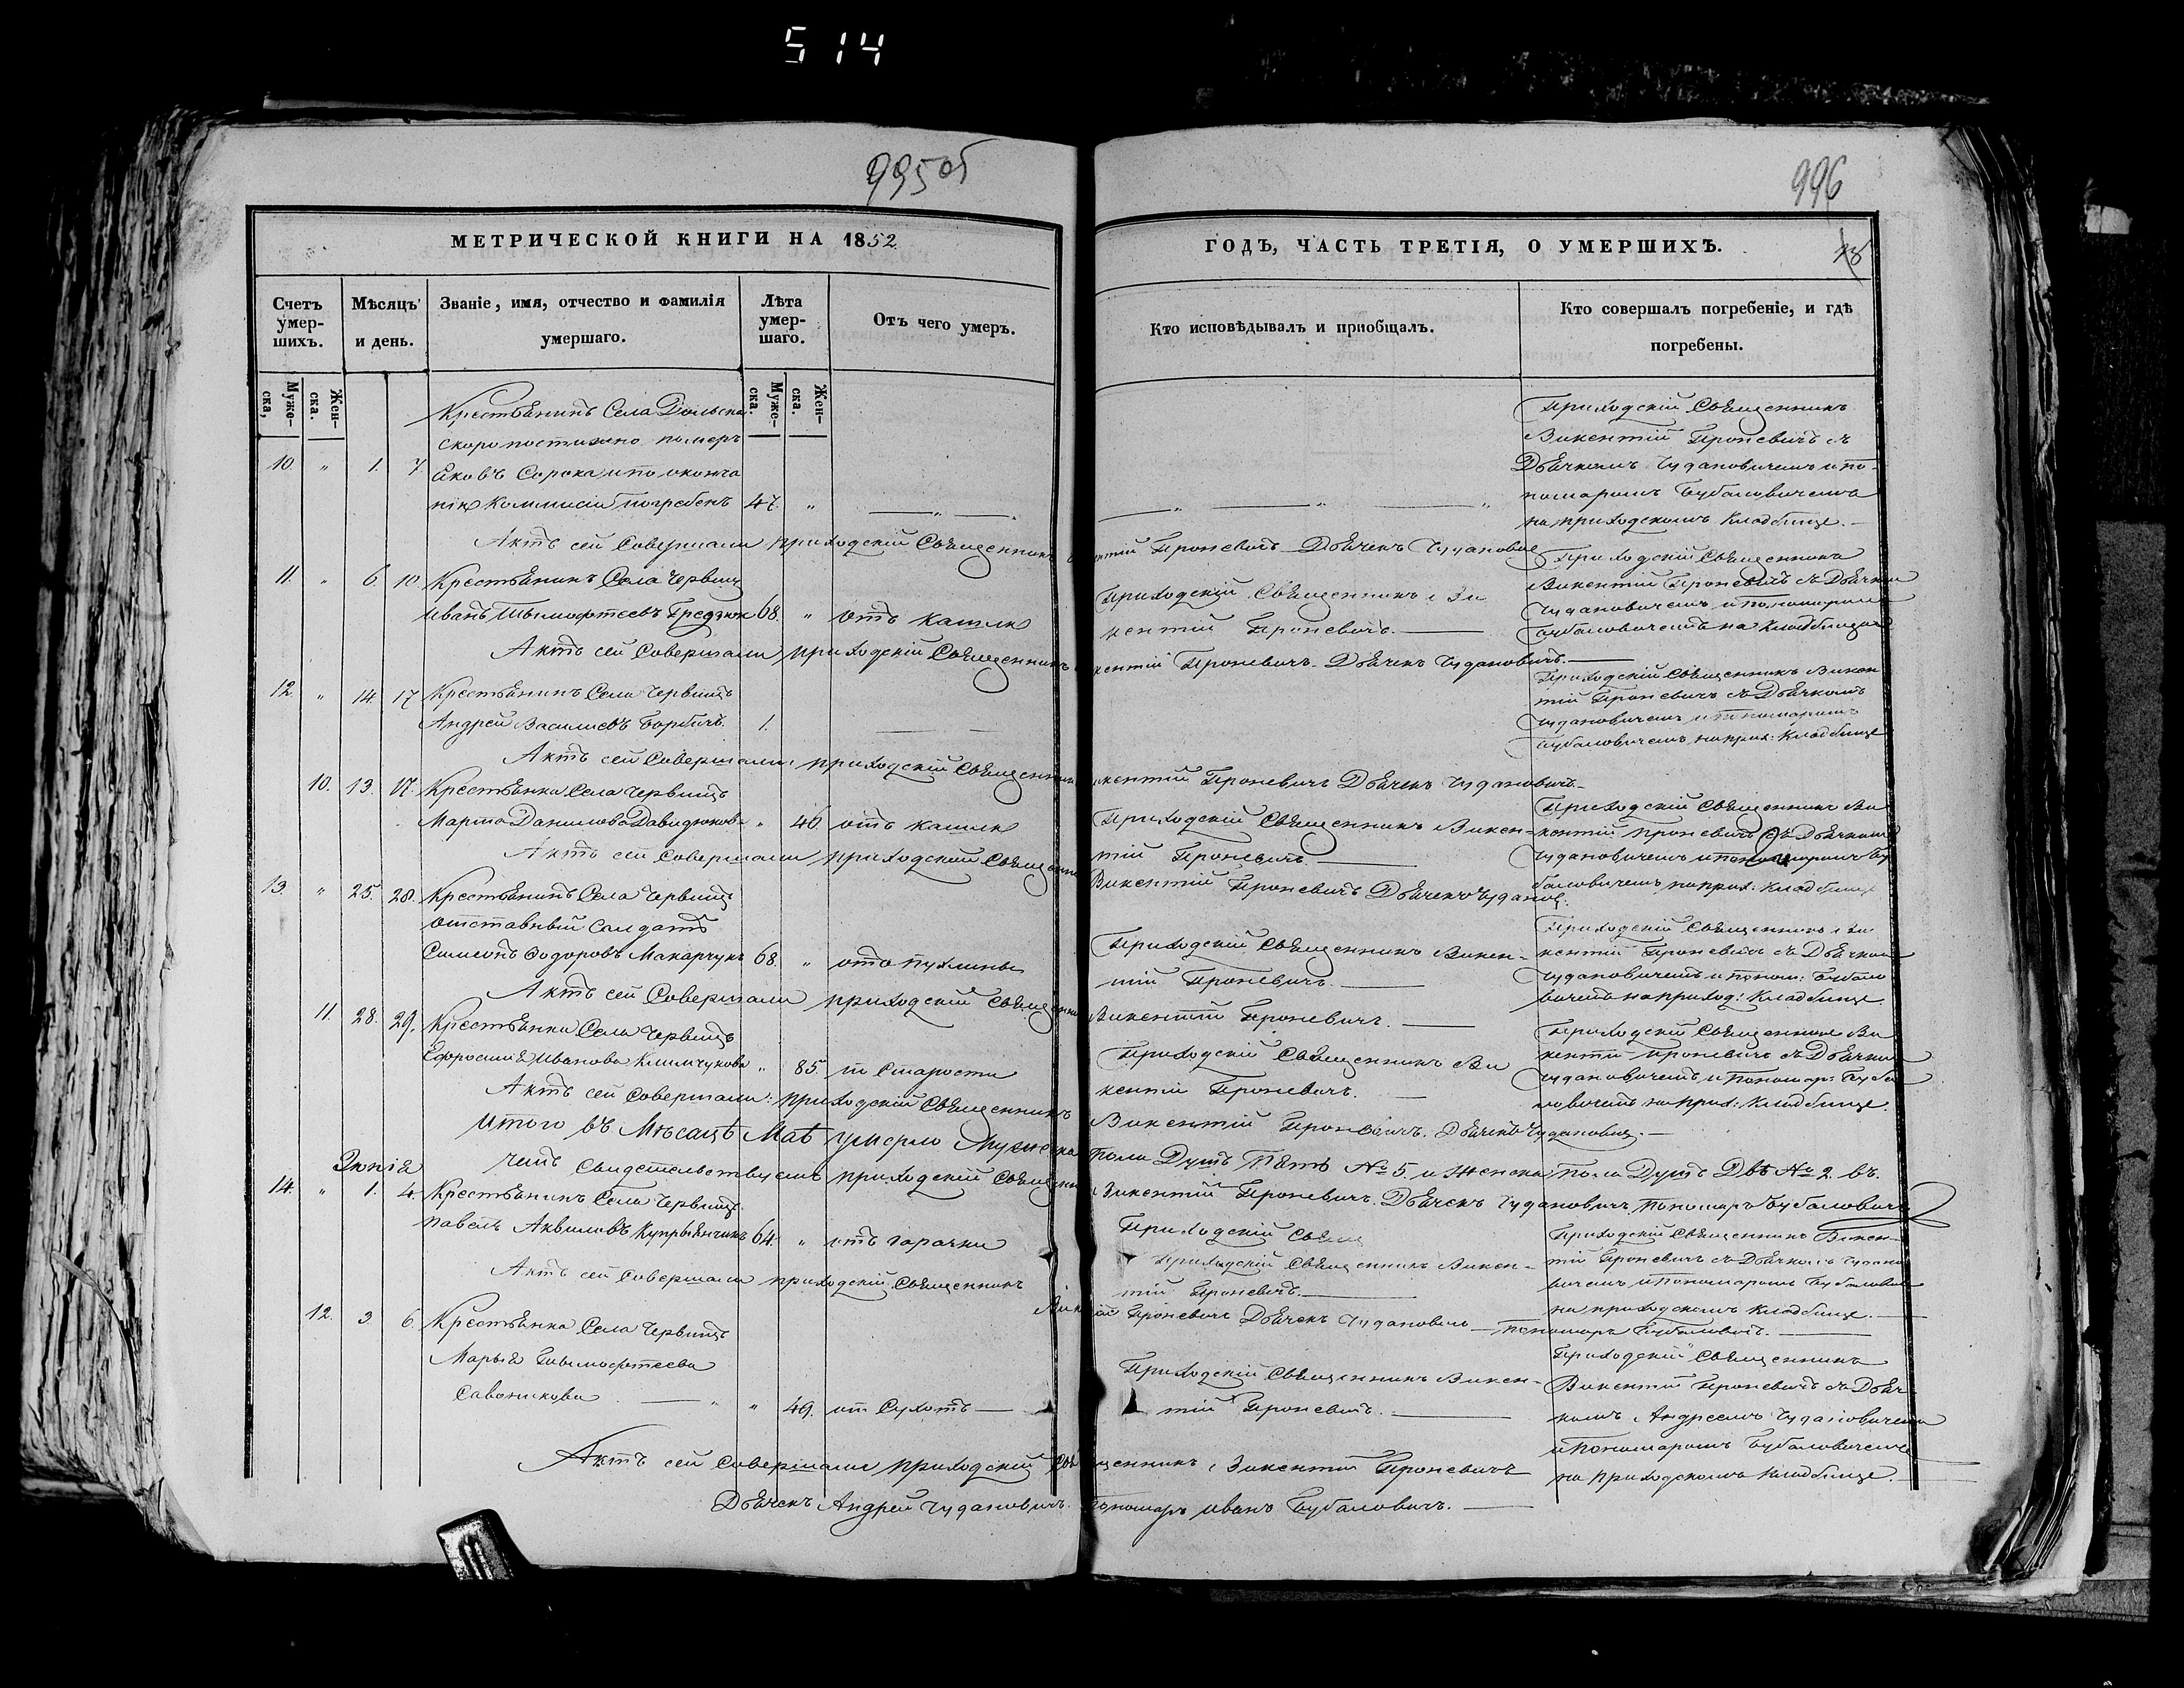 514
995об
996
МЕТРИЧЕСКОЙ КНИГИ НА 1852
ГОДЪ, ЧАСТЬ ТРЕТІЯ, О УМЕРШИХЪ.
Счетъ умер-
шихъ.
Мѣсяцъ
и день.
Званіе, имя, отчество и фамилія
умершаго.
Лѣта
умер-
шаго.
Отъ чего умеръ.
Кто исповѣдывалъ и пріобщалъ.
Кто совершалъ погребеніе, и гдѣ
погребены.
Муже-
ска,
Жен-
ска.
Муже-
ска.
Жен-
ска.
Крестьянинъ Села Дольска
скоропостижно померъ
10. " 1. 7. Яковъ Сорока и по оконча
нію Коммисіи погребенъ 47. "
Приходскій Священникъ
Викентій Проневичъ съ
Дьячкомъ Чудановичемъ и по-
номаромъ Бубаловичемъ
на приходскомъ кладбище.
Актъ сей Совершали приходскій Священникъ Проневичъ Дьячекъ
11. " 6. 10. Крестьянинъ Села Червищ
Иванъ Тимофтеевъ Гредзюк 68. " отъ кашля
Приходскій Священникъ Ви
кентій Проневичъ.
Приходскій Священникъ
Викентій Проневичъ съ Дьячком
Чудановичемъ и Пономаромъ
Бубаловичемъ на Кладбище
Актъ сей Совершали приходскій Священникъ кентій Проневичъ Дьячекъ Чудановичъ.
12. " 14. 17 Крестьянинъ Села Червищъ
Андрей Василіевъ Борбичъ. 1.
Приходскій Священникъ Викен
тій Проневичъ съ Дьячкомъ
Чудановичемъ и пономаромъ
Бубаловичемъ на прих: Кладбище
Актъ сей Совершали приходскій Священникъ кентій Проневичъ Дьячекъ Чудановичъ.
10. 13. 17. Крестьянка Села Червищъ
Марта Данилова Давидюков " 46. отъ кашля
Приходскій Священникъ Викен-
тій Проневичъ
Приходскій Священникъ Ви
кентій Проневичъ съ Дьячкомъ
Чудановичемъ и пономаромъ Бу
баловичемъ на прих: кладбище
Актъ сей Совершали приходскій Священник Викентій Проневичъ Дьячекъ Чуданов.
13. " 25. 28. Крестьянинъ Села Червищъ
отставный Солдатъ
Симеонъ Макарчукъ 68. " отъ пухлины
Приходскій Священникъ Викен-
тій Проневичъ.
Приходскій Священникъ Ви
кентій Проневичъ съ Дьячком
Чудановичемъ и поном: Бубало
вичемъ на приход: Кладбище.
Актъ сей Совершали приходскій Священник Викентій Проневичъ.
11. 28. 29. Крестьянка Села Червищъ
Ефросинія Иванова Климчукова " 85. от Старости
Приходскій Священникъ Ви
кентій Проневичъ.
Приходскій Священник Ви
кентій Проневичъ съ Дьячком
Чудановичемъ и Пономар: Буба
ловичемъ на прих: Кладбище.
Актъ сей Совершали: приходскій Священникъ Викентій Проневичъ. Дьячекъ Чудановичъ.
Итого въ Мѣсяцѣ Маѣ умерло Мужеска пола Душъ Пять № 5 и Женска пола Душъ Двѣ № 2. въ
чемъ Свидетельствуемъ приходскій Священник Викентій Проневичъ. Дьячекъ Чудановичъ. Пономаръ Бубаловичъ
Іюнія
14. " 1. 4. Крестьянинъ Села Червищъ
Павелъ Аквиловъ Купріянчикъ 64. " отъ горачки
Приходскій Свящ
Приходскій Священникъ Викен-
тій Проневичъ.
Приходскій Священникъ Викен-
тій Проневичъ съ Дьячкомъ Чудано
вичемъ и Пономаромъ Бубалович
на приходскомъ Кладбище.
Актъ сей Совершали приходскій Священникъ Викентій Проневичъ Дьячекъ Чудановичъ пономаръ Бубаловичъ.
12. 3. 6. Крестьянка Села Червищъ
Марья Тимофтеева
Савонюкова " " 49. от Сухотъ
Приходскій Священникъ Викен-
тій Проневичъ.
Приходскій Священникъ
Викентій Проневичъ съ Дьяч-
комъ Андреемъ Чудановичемъ
и Пономаромъ Бубаловичемъ
на приходскомъ Кладбище.
Актъ сей Совершали приходскій Священникъ Викентій Проневичъ
Дьячекъ Андрей Чудановичъ. Пономаръ Иванъ Бубаловичъ.